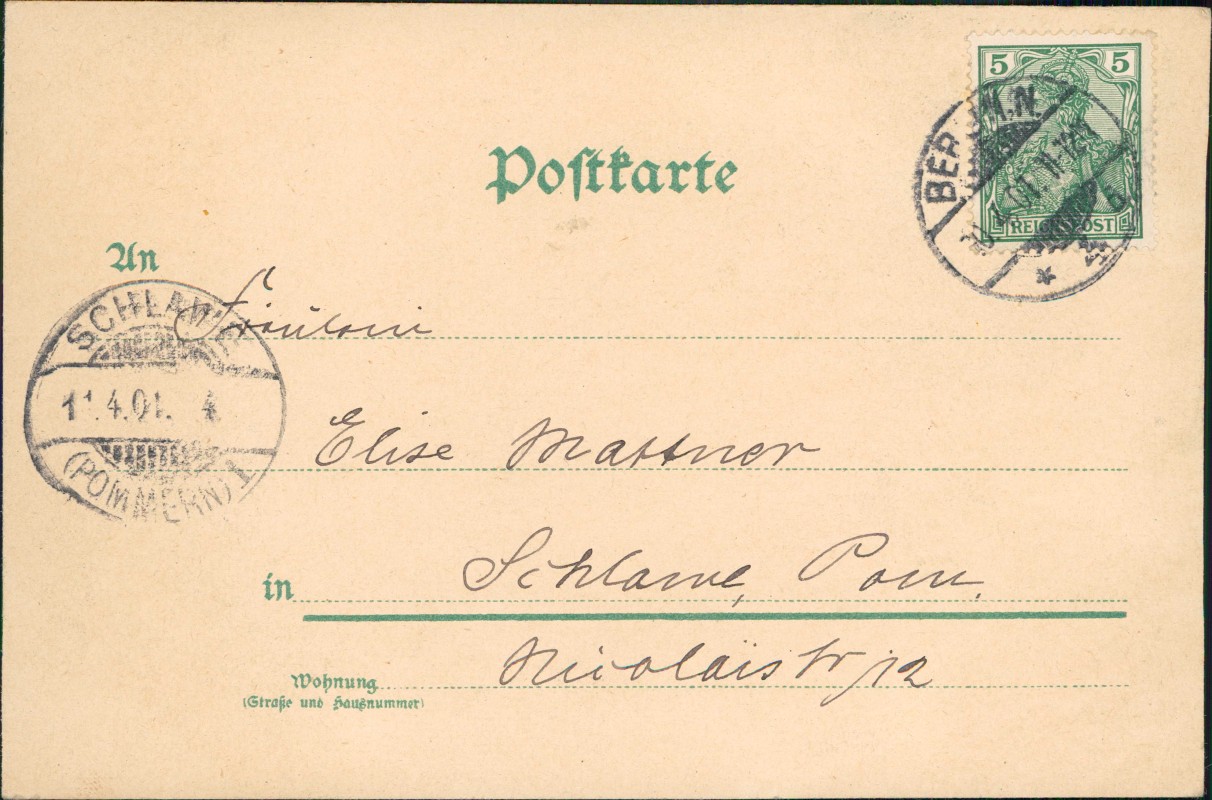 5 5
REICHSPOST
BERLIN.N.
4.01. 11-12
Postkarte
An
Fräulein
SCHLAWE
11.4.01. 4
(POMMERN) 1
Elise Mattner
in Schlawe, Pom.
Nicolaistr 12
Wohnung
(Straße und Hausnummer)